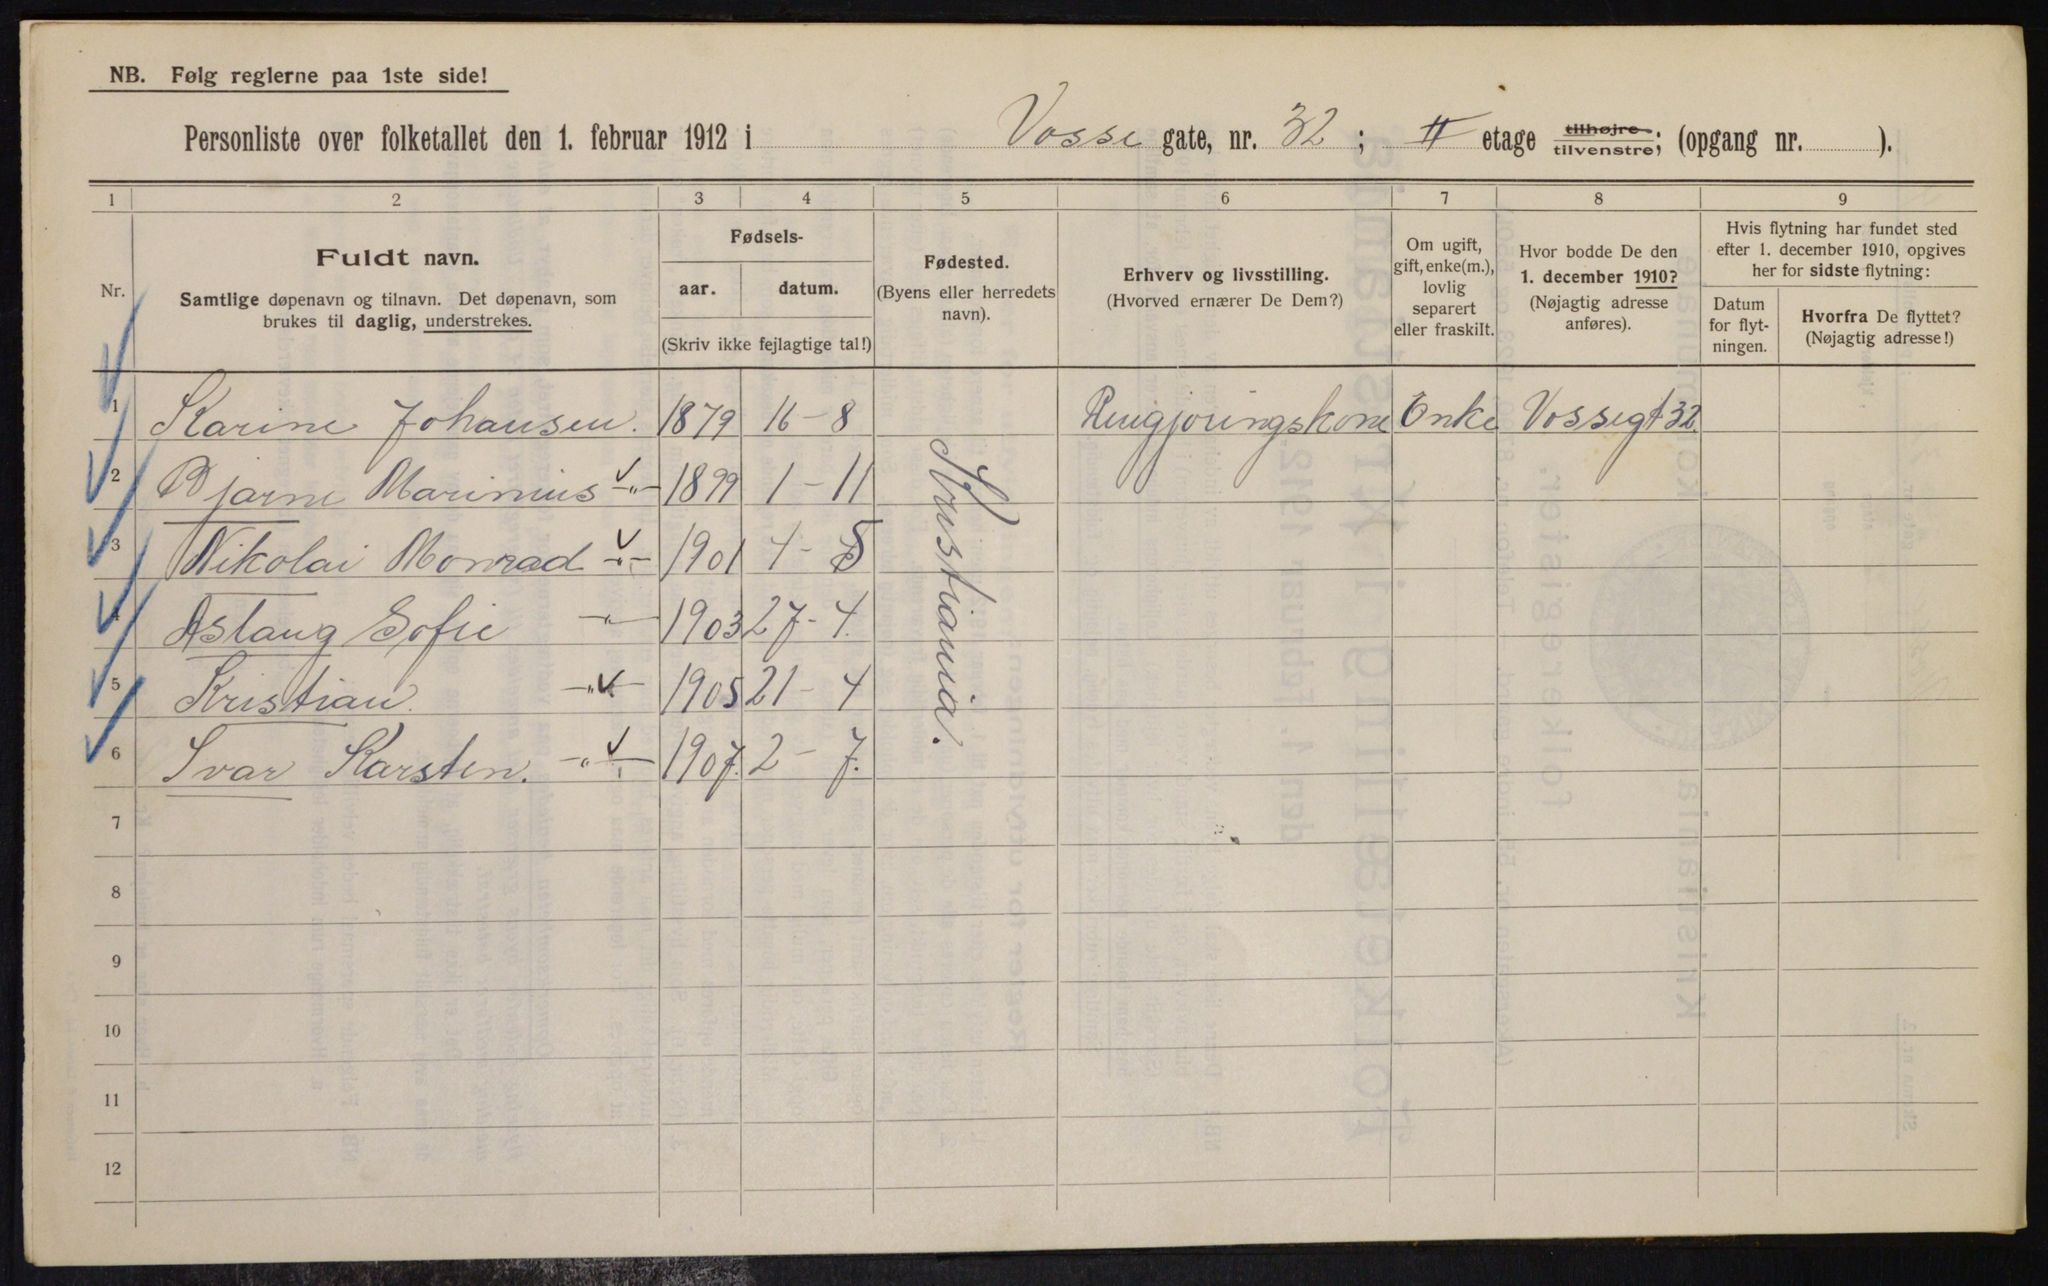 NB. Følg reglerne paa 1ste side!
Personliste over folketallet den 1. februar 1912 i Vosse gate, nr. 32; II etage tilhøjre tilvenstre; (opgang nr. ).
1 2 3 4 5 6 7 8 9
Nr.
Fuldt navn.
Samtlige døpenavn og tilnavn. Det døpenavn, som
brukes til daglig, understrekes.
Fødsels-
aar. datum.
(Skriv ikke fejlagtige tal!)
Fødested.
(Byens eller herredets
navn).
Erhverv og livsstilling.
(Hvorved ernærer De Dem?)
Om ugift,
gift, enke(m.),
lovlig
separert
eller fraskilt.
Hvor bodde De den
1. december 1910?
(Nøjagtig adresse
anføres).
Hvis flytning har fundet sted
efter 1. december 1910, opgives
her for sidste flytning:
Datum
for flyt-
ningen.
Hvorfra De flyttet?
(Nøjagtig adresse!)
1 Karine Johansen. 1879 16-8 Rengjøringskone Enke Vossegt 32.
2 Bjarne Marinius -"- 1899 1-11
3 Nikolai Monrad -"- 1901 4-5
4 Aslaug Sofie -"- 1903 27-4.
5 Kristian. -"- 1905 21-4
6 Ivar Karsten. -"- 1907. 2-7.
Kristiania.
7
8
9
10
11
12